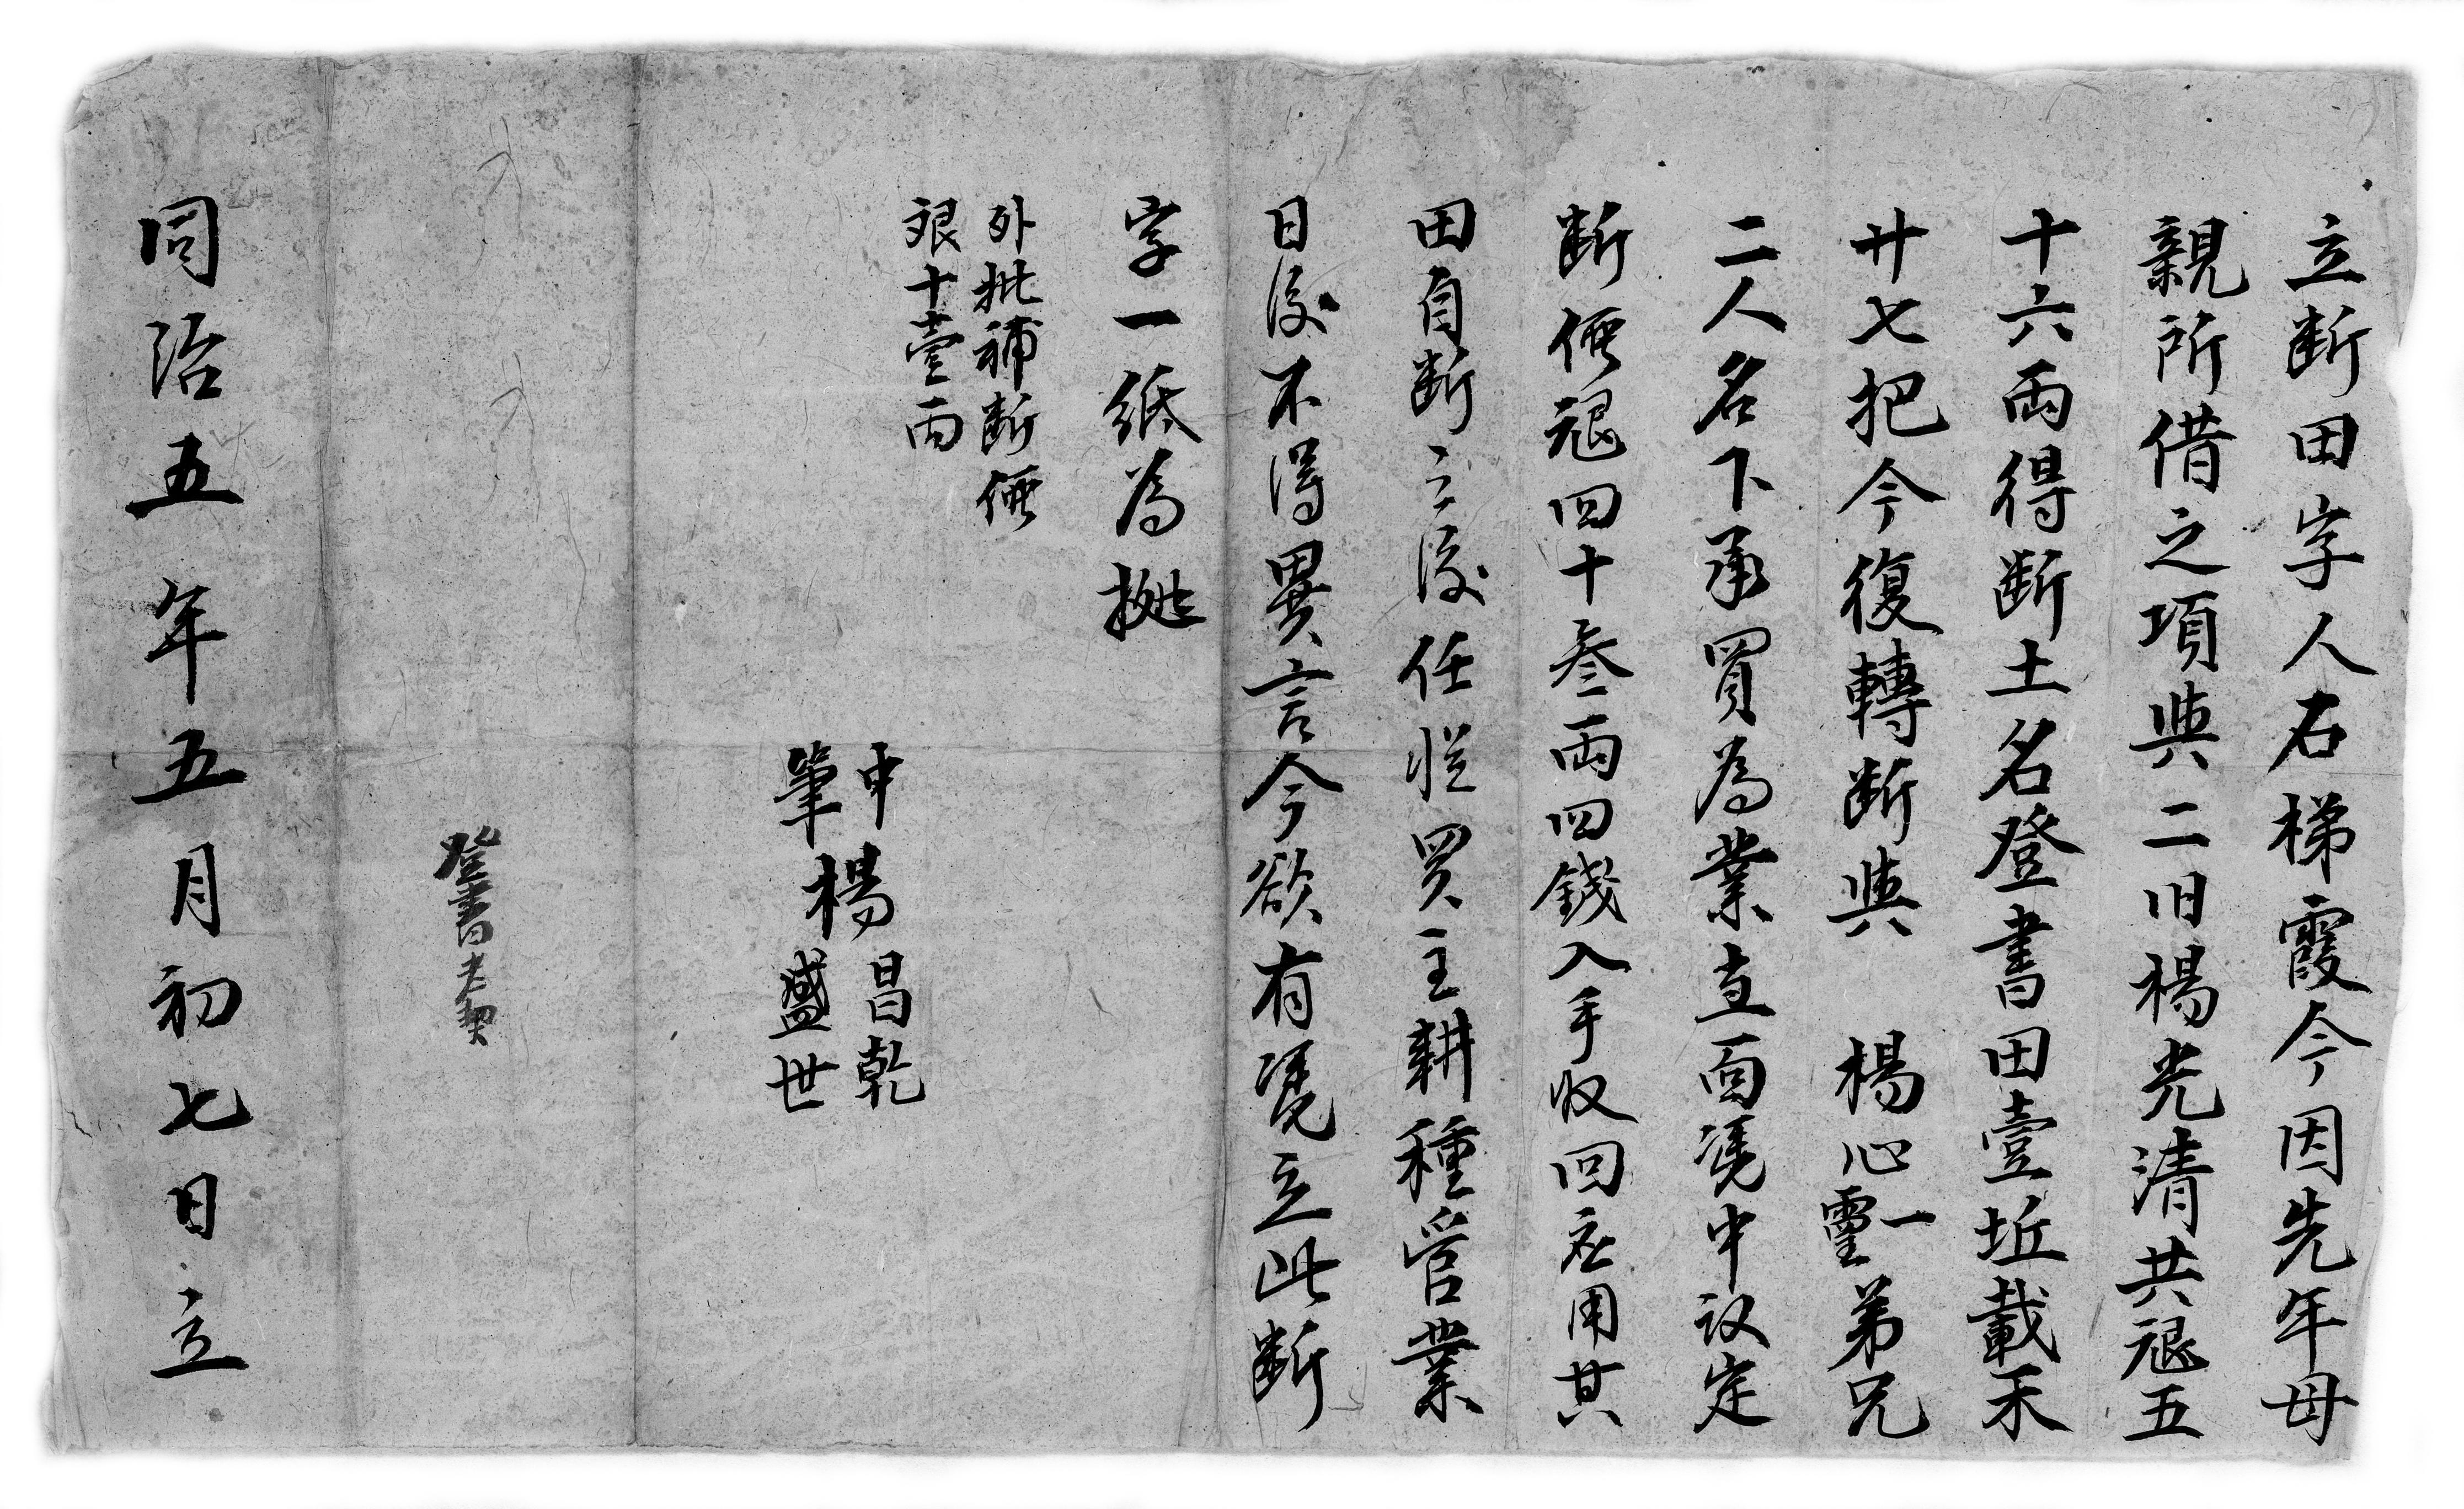 立断田字人石梯霞今因先年母
親所借之項與二旧楊光清共艮五
十六両得断土名登書田壹坵載禾
廿七把今復轉断與　楊心一靈弟兄
二人名下承買為業直面凴中议定
断價艮四十叄両四錢入手收回应用其
田自断之後任従買主耕種管業
日後不得異言今欲有凴立此断
字一紙為拠
外批補断價
艮十壹両
中
筆
楊
昌乾
盛世
登書老契
同治五年五月初七日立